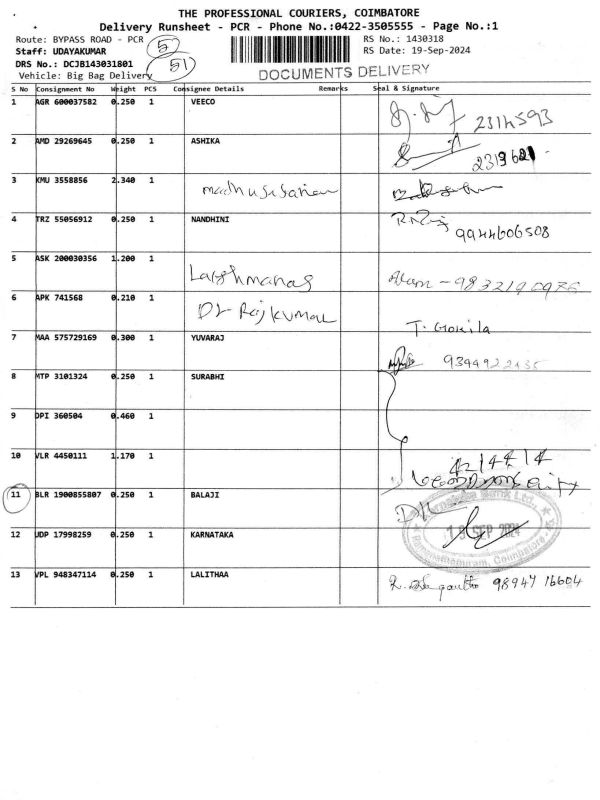 THE PROFESSIONAL COURIERS, COIMBATORE
Delivery Runsheet - PCR - Phone No.:0422-3505555 - Page No.:1
Route: BYPASS ROAD - PCR 5 RS No.: 1430318
Staff: UDAYAKUMAR RS Date: 19-Sep-2024
DRS No.: DCJB143031801 51
Vehicle: Big Bag Delivery DOCUMENTS DELIVERY
S No Consignment No Weight PCS Consignee Details Remarks Seal & Signature
1 AGR 600037582 0.250 1 VEECO 2314593
2 AMD 29269645 0.250 1 ASHIKA
3 KMU 3558856 2.340 1
4 TRZ 55056912 0.250 1 NANDHINI 9944606508
5 ASK 200030356 1.200 1
6 APK 741568 0.210 1 Dr Rajkumar T. Gokila
7 MAA 575729169 0.300 1 YUVARAJ
8 MTP 3101324 0.250 1 SURABHI
9 DPI 360504 0.460 1
10 VLR 4450111 1.170 1
11 BLR 1900855807 0.250 1 BALAJI
12 UDP 17998259 0.250 1 KARNATAKA 19 SEP 2024
13 VPL 948347114 0.250 1 LALITHAA 98947 16604